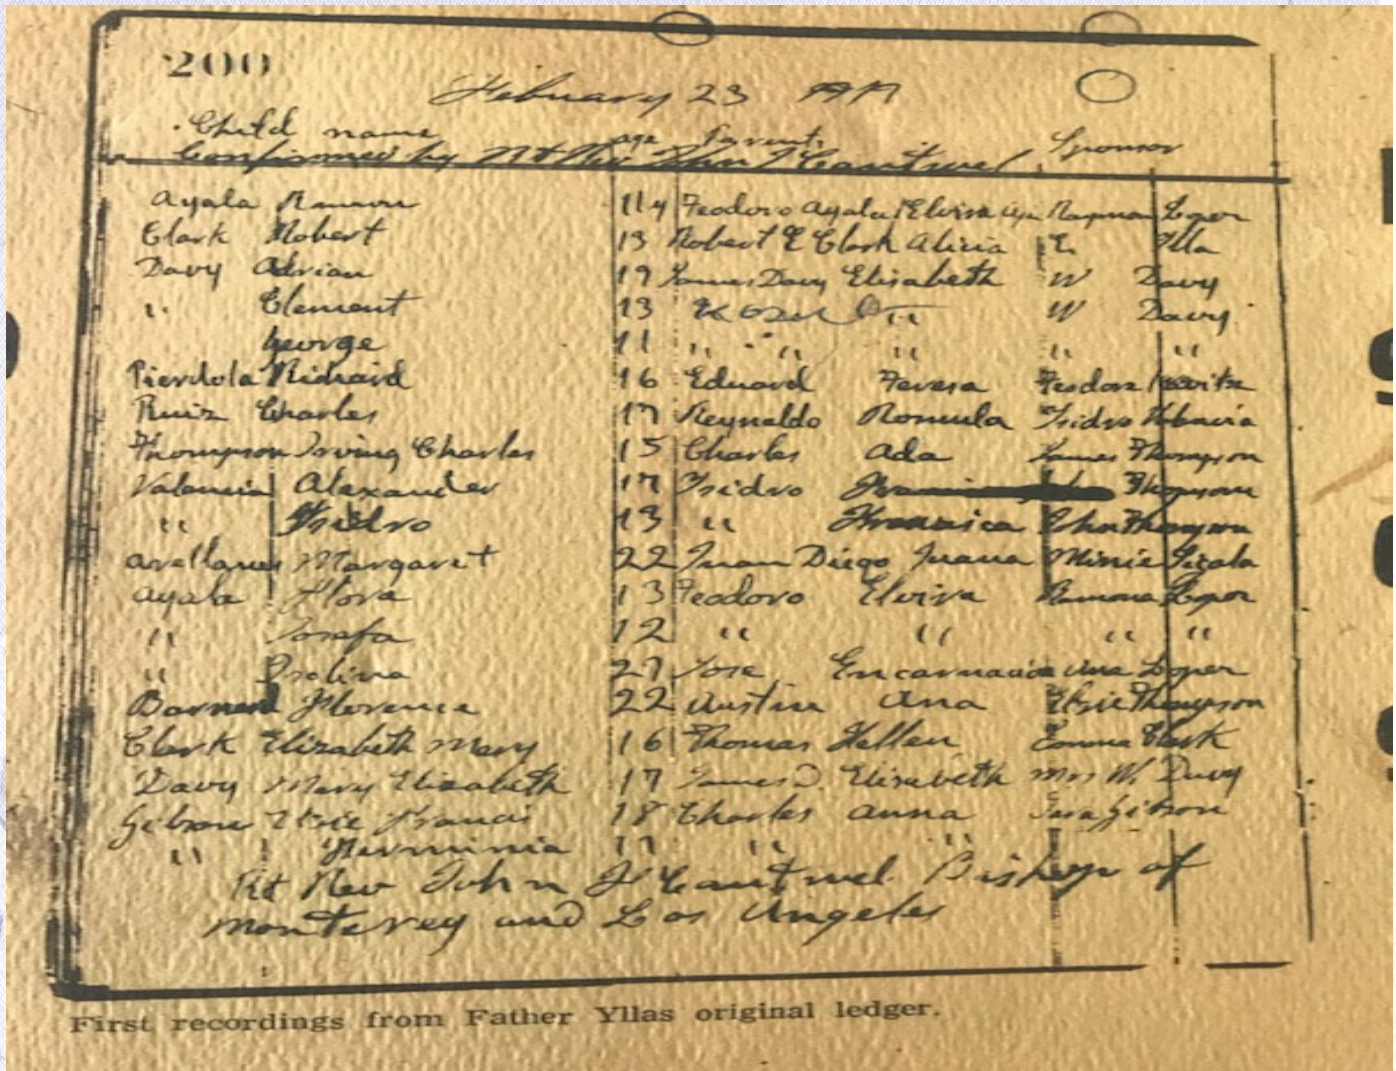 200
February 23 1919
Child name age Parents Sponsor
Confirmed by Rt Rev John J Cantwel
Ayala Ramon 14 Feodoro Ayala Elvira Loper
Clark Robert 13 Robert E Clark Alicia E. Illa
Davy Adrian 19 James Davy Elisabeth W Davy
" Clement 13 " W Davy
George 11 " " " " "
Pierdola Richard 16 Eduard Teresa Feodora
Ruiz Charles 17 Reynaldo Romula Isidro
Thompson Irving Charles 15 Charles Ada James Thompson
Valencia Alexander 17 Isidro Thompson
" Isidro 13 " Francisca Thompson
Arellanes Margaret 22 Juan Diego Juana Minie
Ayala Flora 13 Feodoro Elvira Ramona Loper
" Josefa 12 " " " "
" Isolina 27 Jose Encarnacion Ana Loper
Florence 22 Austin Ana Elsie Thompson
Clark Elizabeth Mary 16 Thomas Hellen Emma Clark
Davy Mary Elizabeth 17 James D. Elisabeth Mrs W. Davy
Gibson Elsie Francis 18 Charles Anna Sara Gibson
" Herminia 17 " "
Rt Rev John J Cantwel Bishop of
Monterey and Los Angeles
First recordings from Father Yllas original ledger.